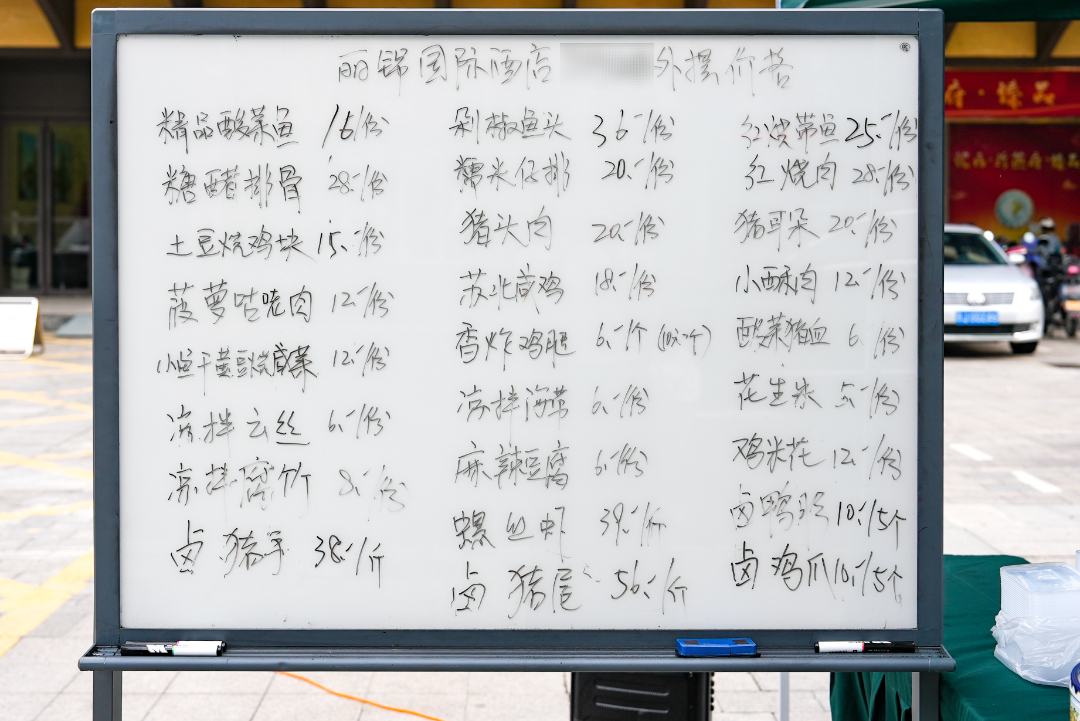 丽锦国际酒店 外摆价格
精品酸菜鱼 16/份 剁椒鱼头 36.-/份 红烧带鱼 25.-/份
糖醋排骨 28.-/份 糯米仔排 20.-/份 红烧肉 28.-/份
土豆烧鸡块 15.-/份 猪头肉 20.-/份 猪耳朵 20.-/份
菠萝咕咾肉 12.-/份 苏北咸鸡 18.-/份 小酥肉 12.-/份
小鱼干黄豆烧咸菜 12.-/份 香炸鸡腿 6.-/个 (10元2个) 酸菜猪血 6.-/份
凉拌云丝 6.-/份 凉拌海带 6.-/份 花生米 5.-/份
凉拌腐竹 8.-/份 麻辣豆腐 6.-/份 鸡米花 12.-/份
卤猪手 38.-/斤 螺丝虾 39.-/斤 卤鸭 10.-/5个
卤猪尾 56.-/斤 卤鸡爪 10.-/5个
府·臻品